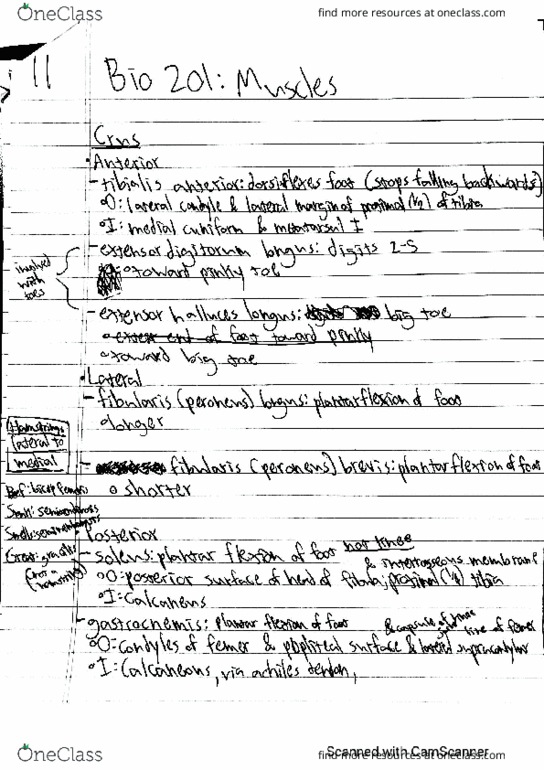 OneClass
find more resources at oneclass.com
11
Bio 201: Muscles
Crus
Anterior
- tibialis anterior: dorsiflexes foot (stops falling backwards)
O: lateral condyle & lateral margin of proximal (1/2) of tibia
I: medial cuniform & metatarsal I
- extensor digitorum longus: digits 2-5
toward pinky toe
involved with toes
- extensor halluces longus: big toe
end of foot toward pinky
toward big toe
Lateral
- fibularis (peroneus) longus: plantarflexion of foot
longer
Hamstrings
lateral to
medial
- fibularis (peroneus) brevis: plantarflexion of foot
shorter
Posterior
- soleus: plantar flexion of foot not knee
& interosseous membrane
O: posterior surface of head of fibula, proximal tibia
I: Calcaneus
- gastrocnemis: plantar flexion of foot
& capsule of knee
line of femer
O: condyles of femer & popliteal surface & lateral
I: Calcaneous, via achiles tendon,
Scanned with CamScanner
OneClass
find more resources at oneclass.com